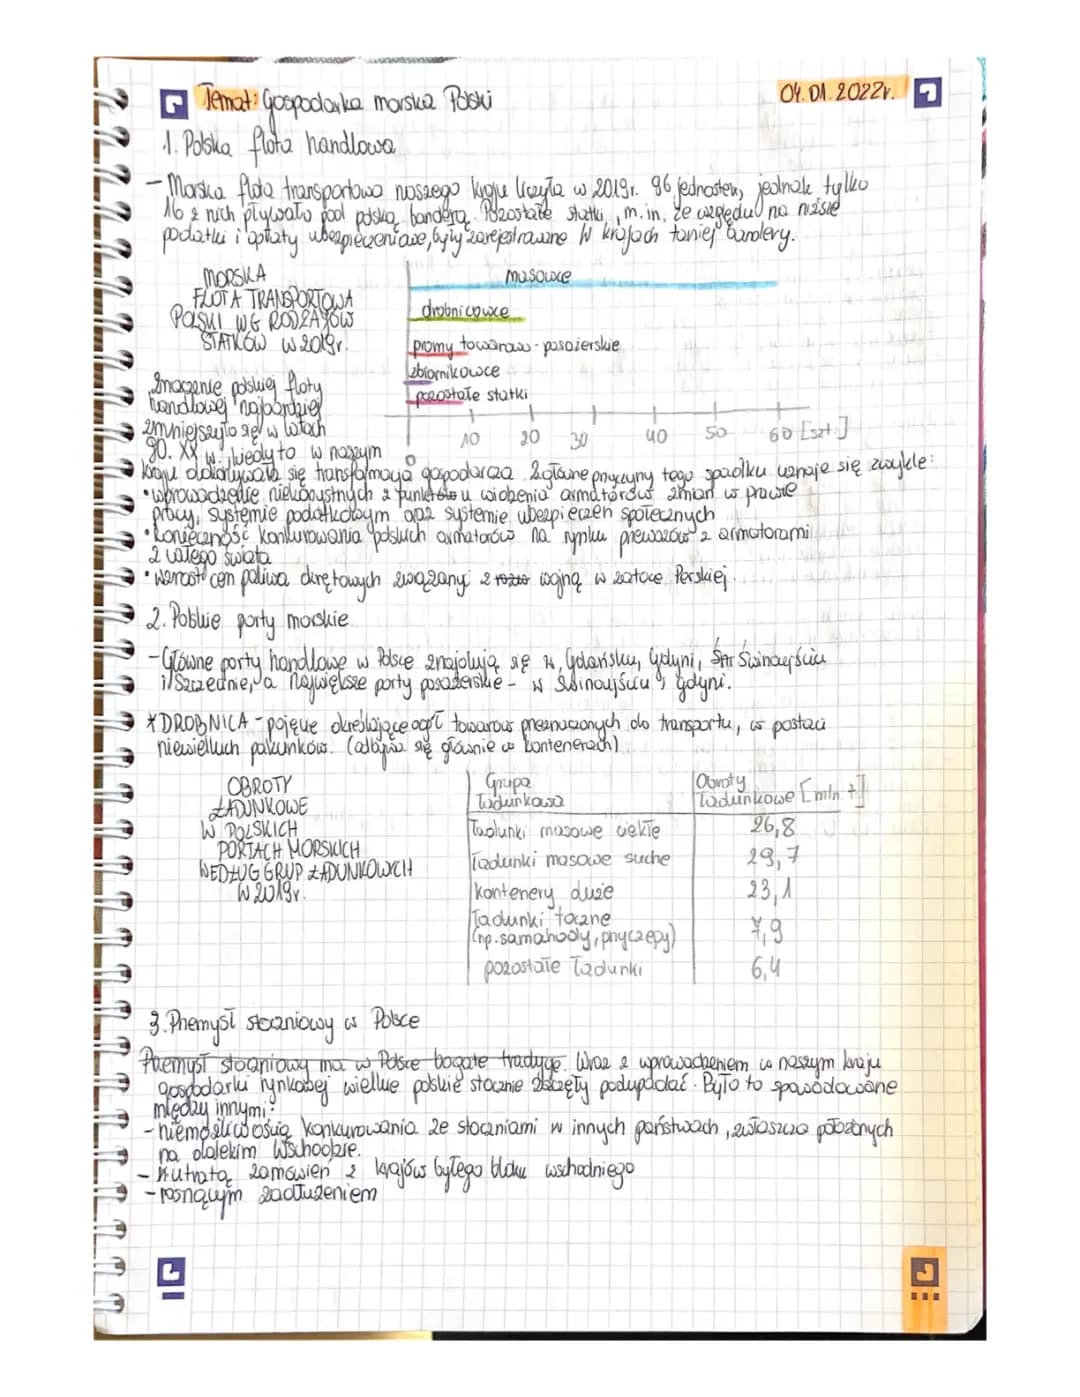 Temat: Gospodarka morska Polski
04.01.2022r.
1. Polska flota handlowa
- Morska flota transportowa naszego kraju liczyła w 2019r. 96 jednostek, jednak tylko
16 z nich pływało pod polską banderą. Pozostałe statki, m.in. ze względu na niższe
podatki i opłaty ubezpieczeniowe, były zarejestrowane w krajach taniej bandery.
MORSKA
FLOTA TRANSPORTOWA
POLSKI WG RODZAJÓW
STATKÓW w 2019r.
masowce
drobnicowce
promy towarowo-pasażerskie
zbiornikowce
pozostałe statki
0 10 20 30 40 50 60 [szt.]
Znaczenie polskiej floty
handlowej najbardziej
zmniejszyło się w latach
90. XX w. kiedy to w naszym
kraju dokonywała się transformacja gospodarcza. Za główne przyczyny tego spadku uznaje się zwykle:
• wprowadzenie niekorzystnych z punktu widzenia armatorów zmian w prawie
pracy, systemie podatkowym oraz systemie ubezpieczeń społecznych
• konieczność konkurowania polskich armatorów na rynku przewozów z armatorami
z całego świata
• wzrost cen paliwa okrętowych związany z wojną w zatoce Perskiej.
2. Polskie porty morskie
- Główne porty handlowe w Polsce znajdują się w Gdańsku, Gdyni, Świnoujściu
i Szczecinie, a największe porty pasażerskie - w Świnoujściu i Gdyni.
* DROBNICA - pojęcie określające ogół towarów przeznaczonych do transportu, w postaci
niewielkich pakunków. (odbywa się głównie w kontenerach)
OBROTY
ŁADUNKOWE
W POLSKICH
PORTACH MORSKICH
WEDŁUG GRUP ŁADUNKOWYCH
W 2019r.
Grupa ładunkowa | Obroty ładunkowe [mln t]
ładunki masowe ciekłe 26,8
ładunki masowe suche 29,7
kontenery duże 23,1
ładunki toczne
(np. samochody, przyczepy) 7,9
pozostałe ładunki 6,4
3. Przemysł stoczniowy w Polsce
Przemysł stoczniowy ma w Polsce bogate tradycje. Wraz z wprowadzeniem w naszym kraju
gospodarki rynkowej wielkie polskie stocznie zaczęły podupadać. Było to spowodowane
między innymi:
- niemożliwością konkurowania ze stoczniami w innych państwach, zwłaszcza położonych
na dalekim Wschodzie.
- utratą zamówień z krajów byłego bloku wschodniego
- rosnącym zadłużeniem